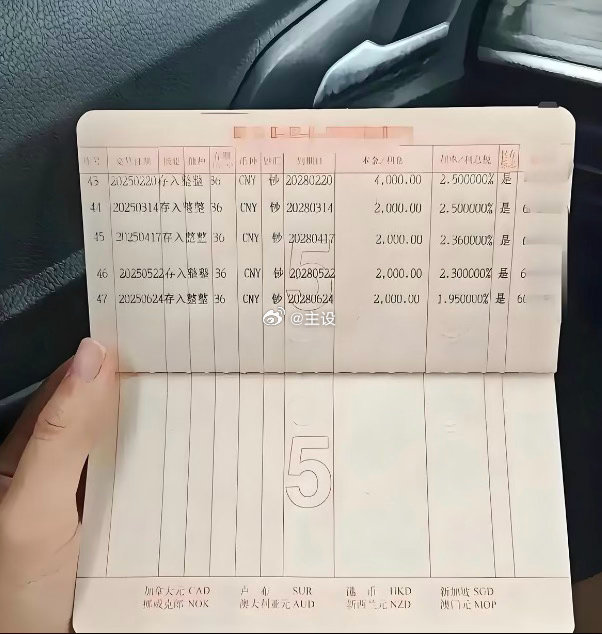 序号 交易日期 摘要 储种 存期 币种 钞汇 到期日 本金/利息 利率/利息税
43 20250220 存入 整整 36 CNY 钞 20280220 4,000.00 2.500000% 是
44 20250314 存入 整整 36 CNY 钞 20280314 2,000.00 2.500000% 是 6
45 20250417 存入 整整 36 CNY 钞 20280417 2,000.00 2.360000% 是 6
46 20250522 存入 整整 36 CNY 钞 20280522 2,000.00 2.300000% 是 6
47 20250624 存入 整整 36 CNY 钞 20280624 2,000.00 1.950000% 是 60
5
@主设
5
加拿大元 CAD 卢布 SUR 港币 HKD 新加坡 SGD
挪威克郎 NOK 澳大利亚元 AUD 新西兰元 NZD 澳门元 MOP